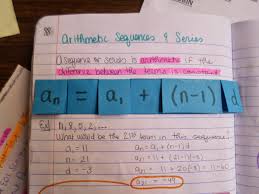 Arithmetic Sequences & Series
A sequence or series is arithmetic if the
difference between the terms is constant
aₙ = a₁ + (n-1) d
Ex) 11, 8, 5, 2, ...
What would be the 21st term in this sequence?
a₁ = 11 aₙ = a₁ + (n-1)d
n = 21 = 11 + (21-1)(-3)
d = -3 = 11 + 20(-3) = 11-60
= -49